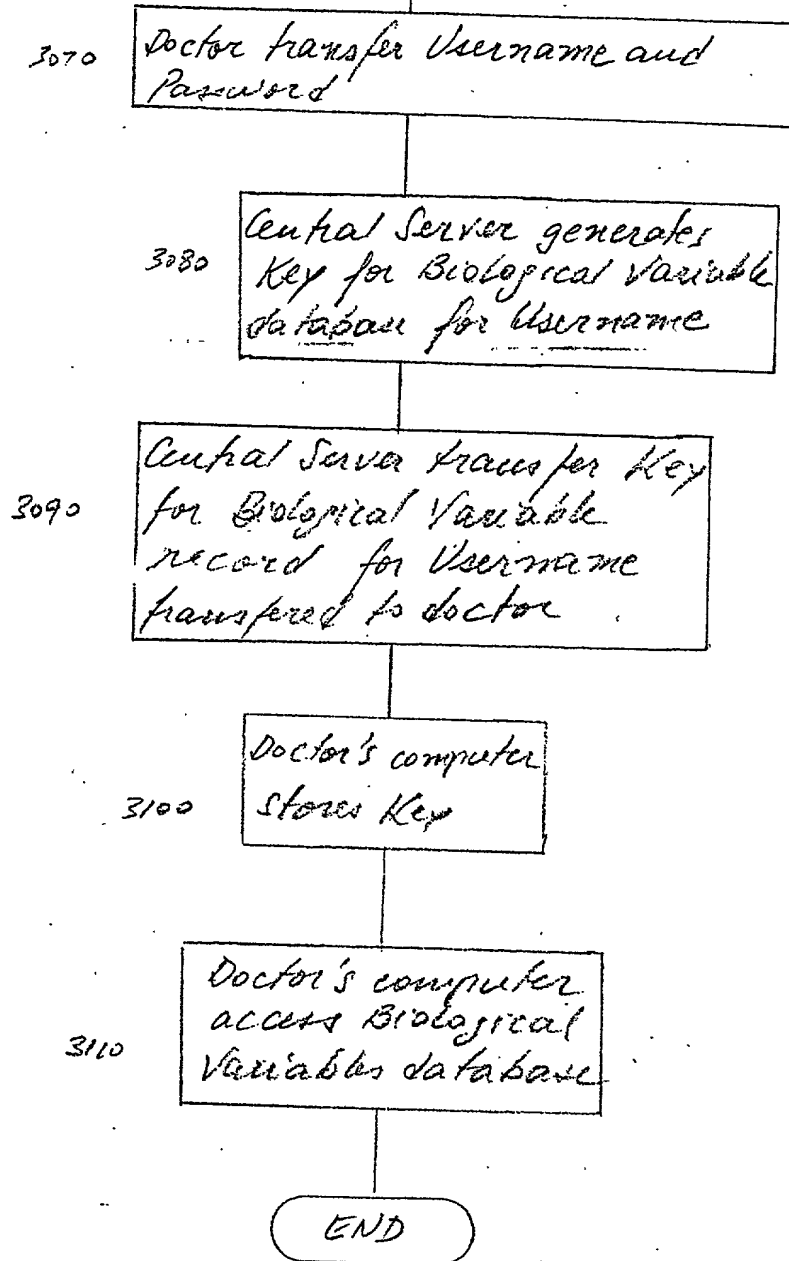 3070
Doctor transfer Username and
Password
3080
Central Server generates
Key for Biological Variable
database for Username
3090
Central Server transfer Key
for Biological Variable
record for Username
transfered to doctor
3100
Doctor's computer
Stores Key
3110
Doctor's computer
access Biological
Variables database
END